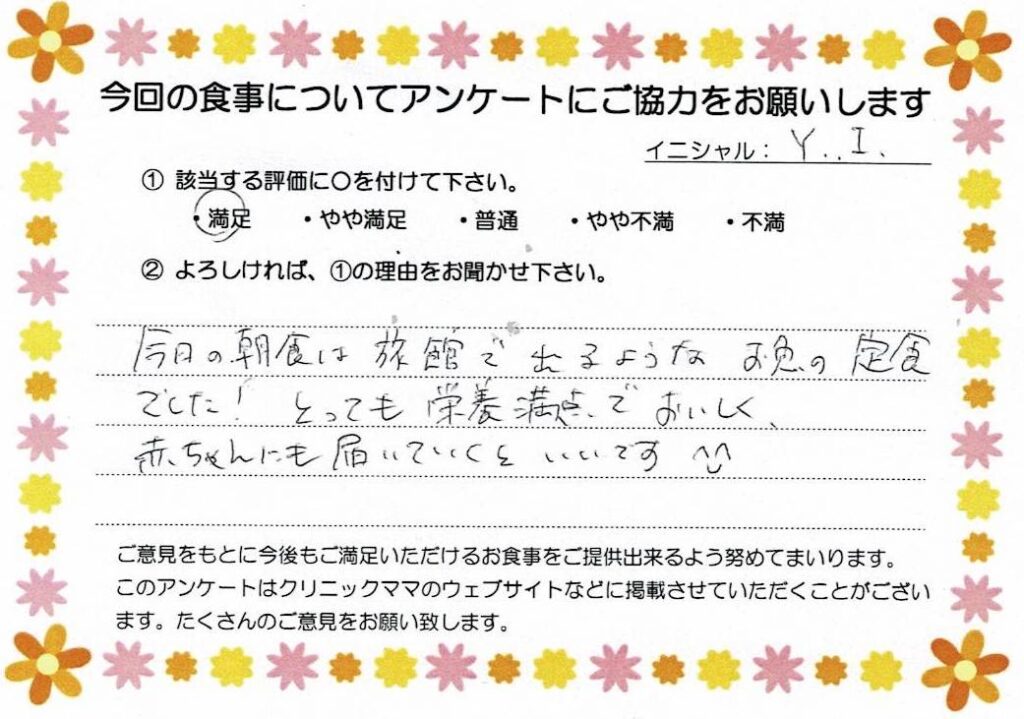 今回の食事についてアンケートにご協力をお願いします
イニシャル： Y．I．
① 該当する評価に○を付けて下さい。
・満足 ・やや満足 ・普通 ・やや不満 ・不満
② よろしければ、①の理由をお聞かせ下さい。
今日の朝食は 旅館で 出るような お魚の 定食
でした！ とっても 栄養満点で おいしく、
赤ちゃんにも 届いていくと いいです ^^
ご意見をもとに今後もご満足いただけるお食事をご提供出来るよう努めてまいります。
このアンケートはクリニックママのウェブサイトなどに掲載させていただくことがござい
ます。たくさんのご意見をお願い致します。